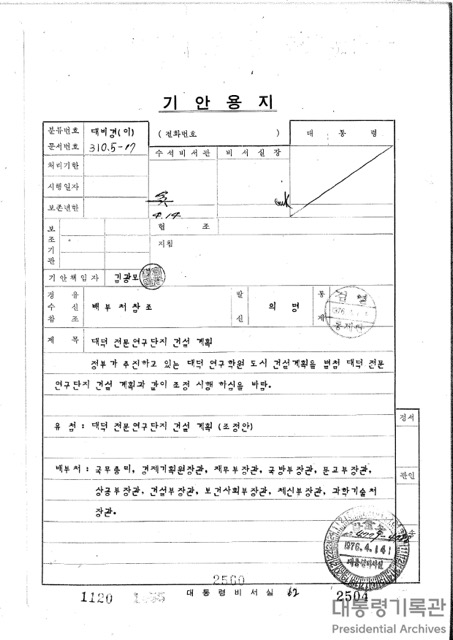 기안용지
분류번호 대비경(이) (전화번호 ) 대통령
문서번호 310.5-17 수석비서관 비서실장
처리기한
시행일자
보존년한 4.14
보조기관 협조
지침
기안책임자 김광모
경유 발신 통제
수신 배부처참조 의명 검열
참조 1976.4.14
통제관
제목 대덕 전문연구단지 건설 계획
정부가 추진하고 있는 대덕 연구학원 도시 건설계획을 별첨 대덕 전문
연구단지 건설 계획과 같이 조정 시행 하심을 바람.
유첨 : 대덕 전문연구단지 건설 계획 (조정안) 정서
배부처 : 국무총리, 경제기획원장관, 재무부장관, 국방부장관, 문교부장관, 관인
상공부장관, 건설부장관, 보건사회부장관, 체신부장관, 과학기술처
장관.
1976.4.14
대통령비서실
2560
1120 대통령비서실 62 2504
대통령기록관
Presidential Archives